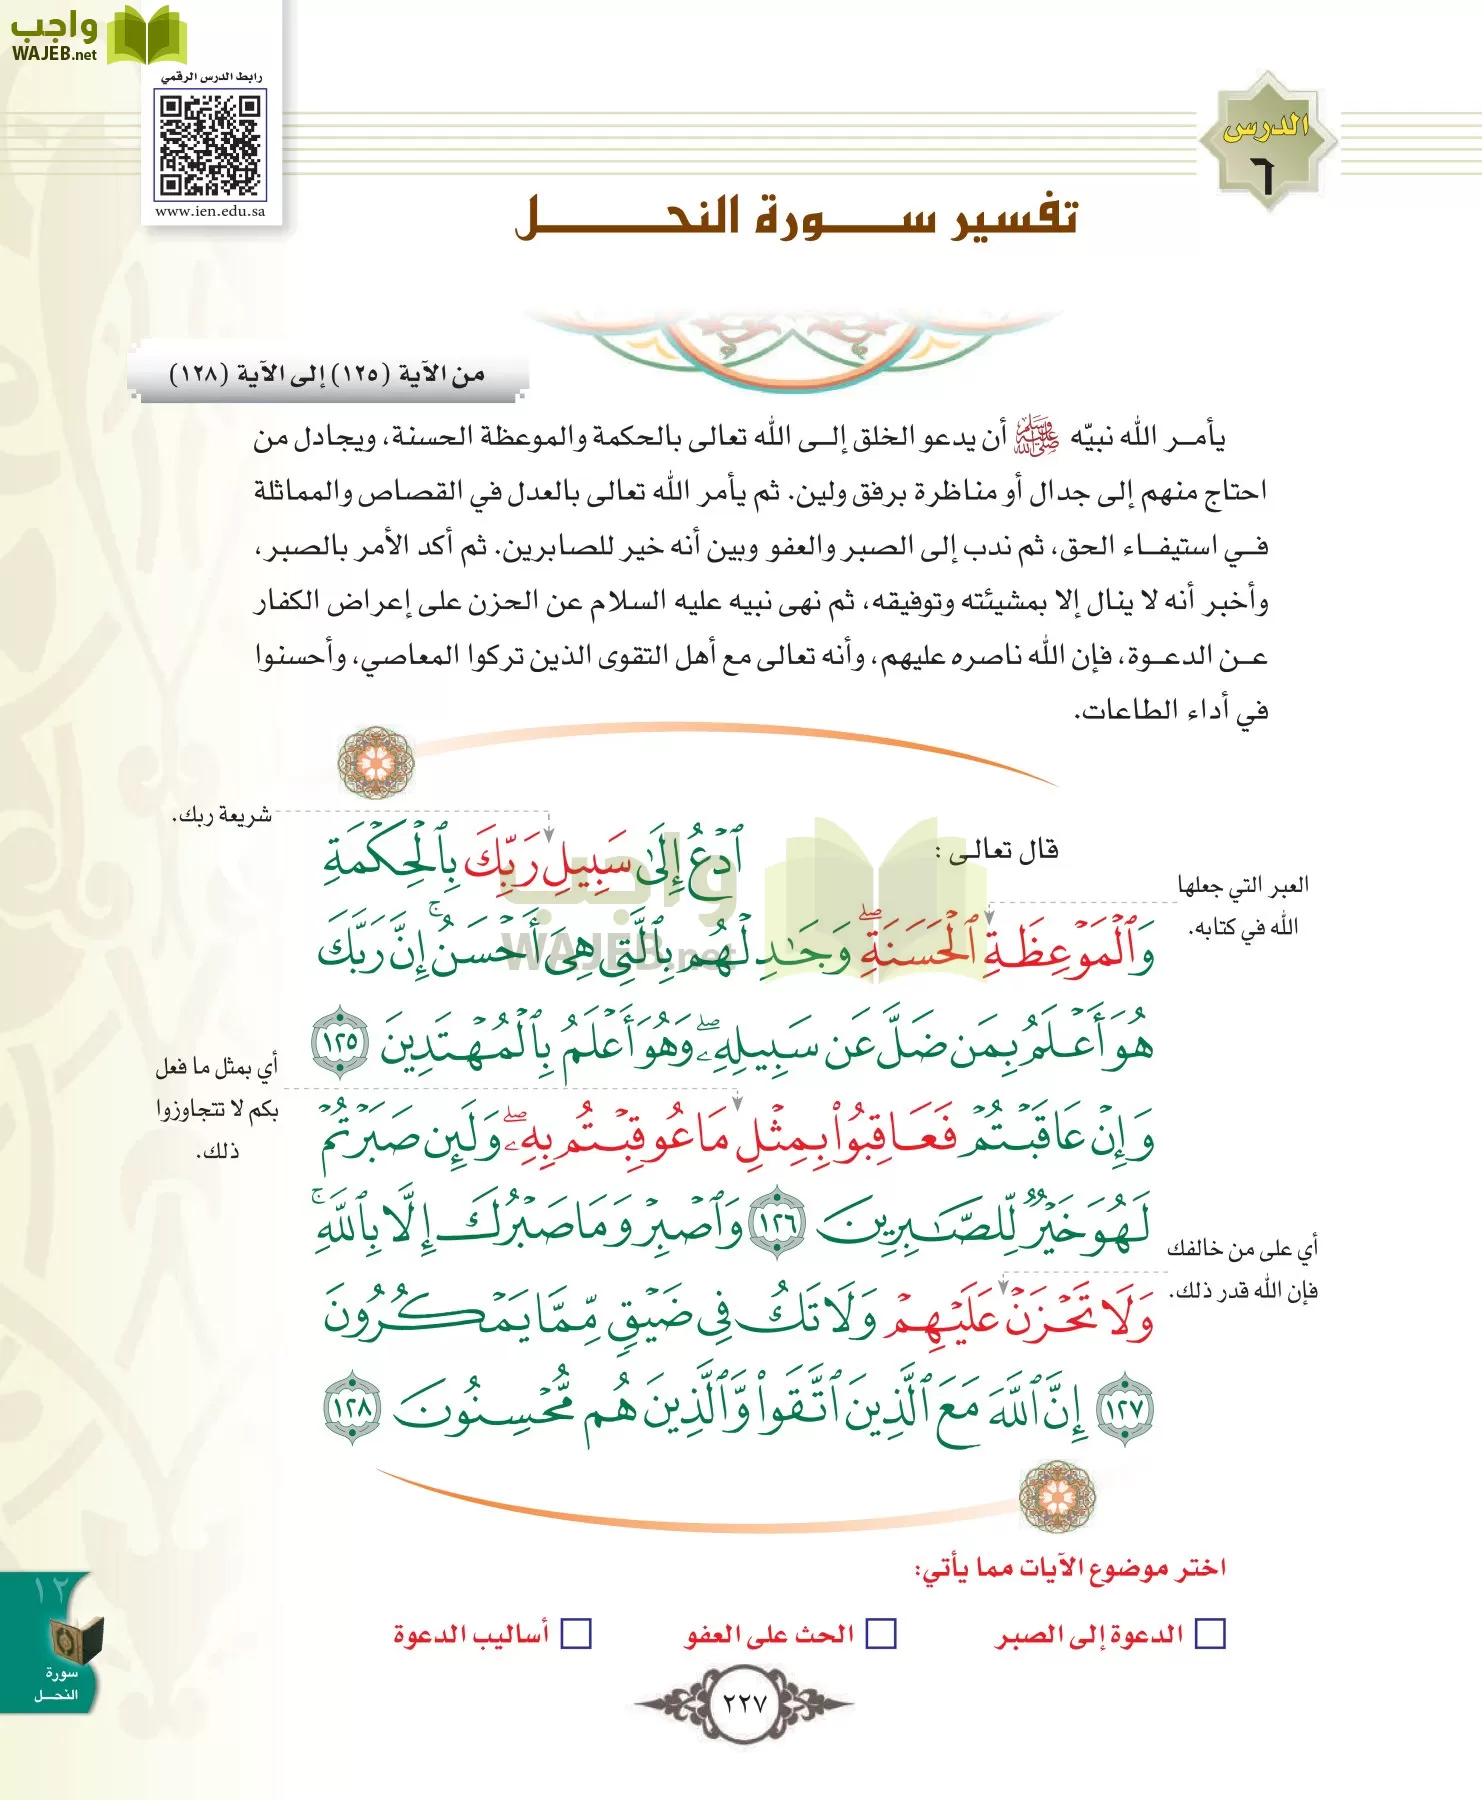 واجب
WAJEB.net
رابط الدرس الرقمي
www.ien.edu.sa
الدرس
٦
تفسير سورة النحل
من الآية (١٢٥) إلى الآية (١٢٨)
يأمر الله نبيّه ﷺ أن يدعو الخلق إلى الله تعالى بالحكمة والموعظة الحسنة، ويجادل من
احتاج منهم إلى جدال أو مناظرة برفق ولين. ثم يأمر الله تعالى بالعدل في القصاص والمماثلة
في استيفاء الحق، ثم ندب إلى الصبر والعفو وبين أنه خير للصابرين. ثم أكد الأمر بالصبر،
وأخبر أنه لا ينال إلا بمشيئته وتوفيقه، ثم نهى نبيه عليه السلام عن الحزن على إعراض الكفار
عن الدعوة، فإن الله ناصره عليهم، وأنه تعالى مع أهل التقوى الذين تركوا المعاصي، وأحسنوا
في أداء الطاعات.
شريعة ربك.
قال تعالى :
ٱدۡعُ إِلَىٰ سَبِيلِ رَبِّكَ بِٱلۡحِكۡمَةِ
العبر التي جعلها
الله في كتابه.
وَٱلۡمَوۡعِظَةِ ٱلۡحَسَنَةِۖ وَجَٰدِلۡهُم بِٱلَّتِي هِيَ أَحۡسَنُۚ إِنَّ رَبَّكَ
هُوَ أَعۡلَمُ بِمَن ضَلَّ عَن سَبِيلِهِۦۖ وَهُوَ أَعۡلَمُ بِٱلۡمُهۡتَدِينَ ١٢٥
أي بمثل ما فعل
بكم لا تتجاوزوا
ذلك.
وَإِنۡ عَاقَبۡتُمۡ فَعَاقِبُواْ بِمِثۡلِ مَا عُوقِبۡتُم بِهِۦۖ وَلَئِن صَبَرۡتُمۡ
لَهُوَ خَيۡرٞ لِّلصَّٰبِرِينَ ١٢٦ وَٱصۡبِرۡ وَمَا صَبۡرُكَ إِلَّا بِٱللَّهِۚ
أي على من خالفك
فإن الله قدر ذلك.
وَلَا تَحۡزَنۡ عَلَيۡهِمۡ وَلَا تَكُ فِي ضَيۡقٖ مِّمَّا يَمۡكُرُونَ
١٢٧ إِنَّ ٱللَّهَ مَعَ ٱلَّذِينَ ٱتَّقَواْ وَّٱلَّذِينَ هُم مُّحۡسِنُونَ ١٢٨
واجب
WAJEB.net
اختر موضوع الآيات مما يأتي:
الدعوة إلى الصبر الحث على العفو أساليب الدعوة
١٢
سورة
النحل
٢٢٧